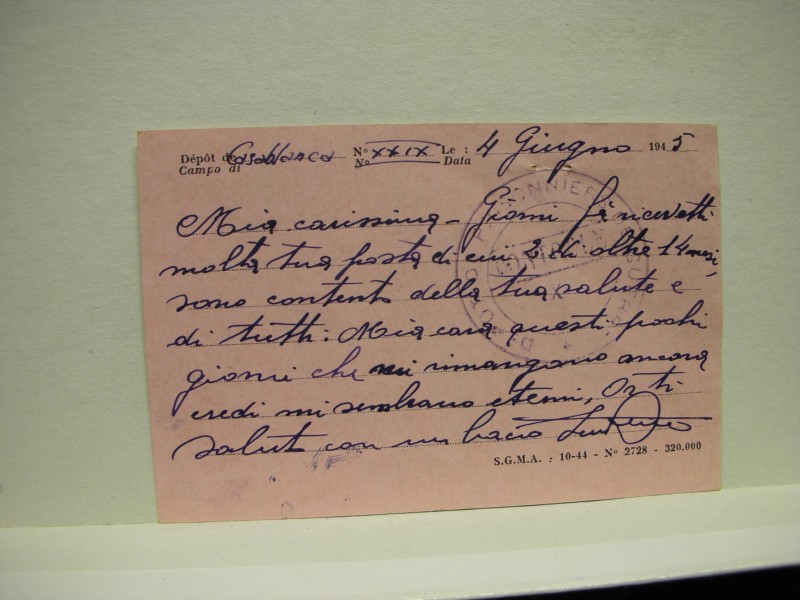 Dépôt de Casablanca Nº XXIX Le : 4 Giugno 1945
Campo di Nº Data
Mia carissima - Giorni fà ricevetti
molta tua posta di cui 2 di oltre 14 mesi,
sono contento della tua salute e
di tutti. Mia cara questi pochi
giorni che mi rimangono ancora
credi mi sembrano eterni, Or ti
saluto con un bacio
S.G.M.A. : 10-44 - Nº 2728 - 320.000